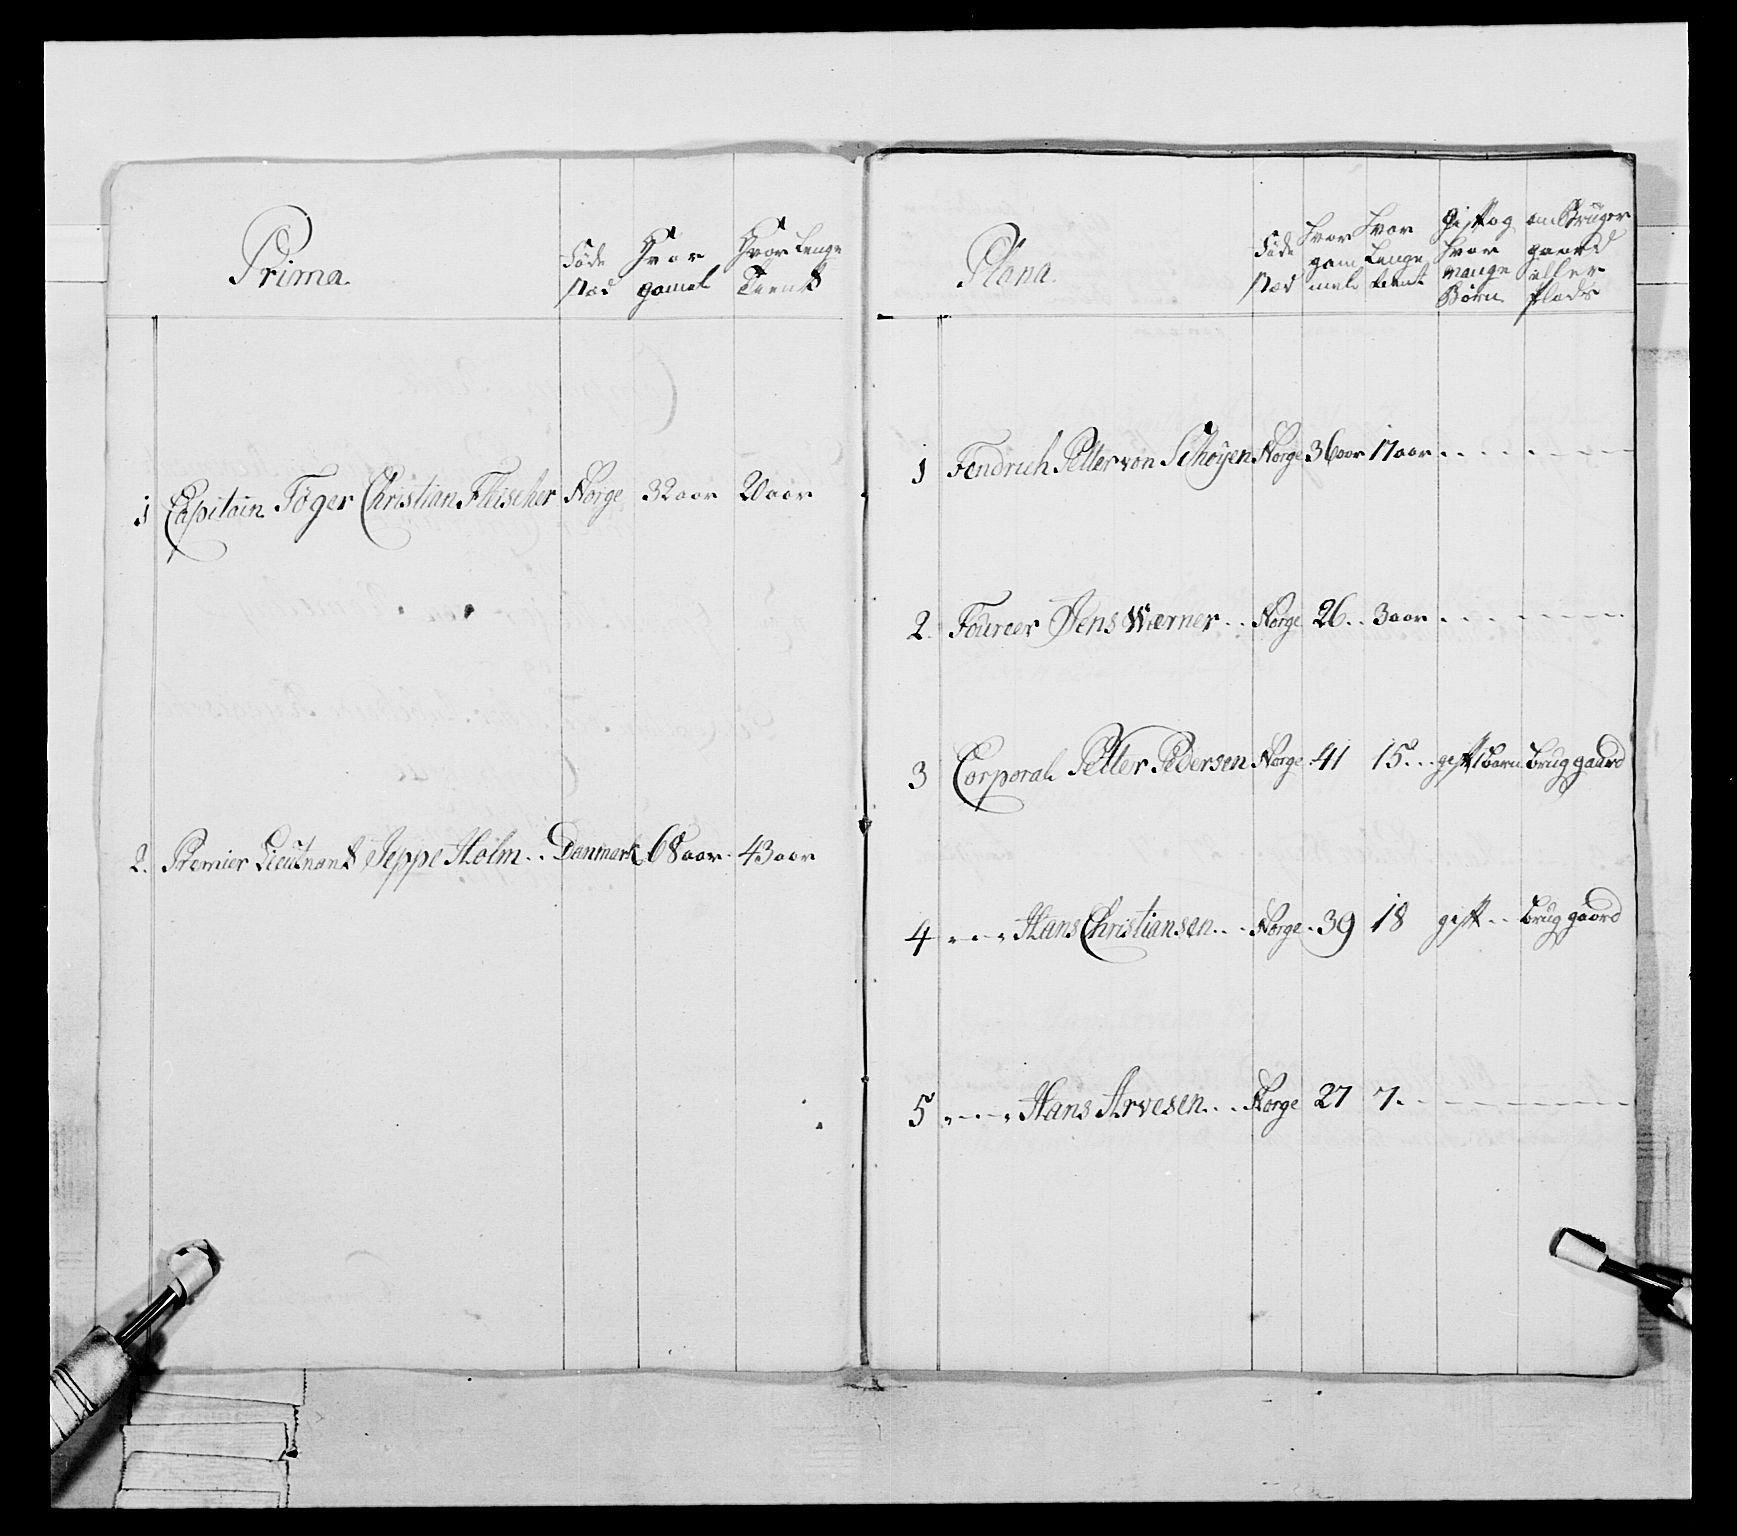 Prima.
Føde Stæd
Hvor gamel
Hvor Lenge Tient
1 Capitain Tøger Christian Fleischer Norge 32 aar 20 aar
2. Premier Lieutnant Jeppe Holm.. Danmark 68 aar. 43 aar
Plana.
Føde Stæd
hvor gammel
hvor Lenge tient
Gift og hvor mange Børn
om Bruger gaard eller Plads
1 Fendrich Petter von Schøyen Norge 36 aar 17 aar
2. Foureer Jens Wærner.. Norge 26.. 3 aar
3 Corporal Petter Pedersen Norge 41 15... gift 1 barn brug gaard
4 Hans Christiansen... Norge. 39 18 gift.. brug gaard
5 Hans Arvesen... Norge 27 7.